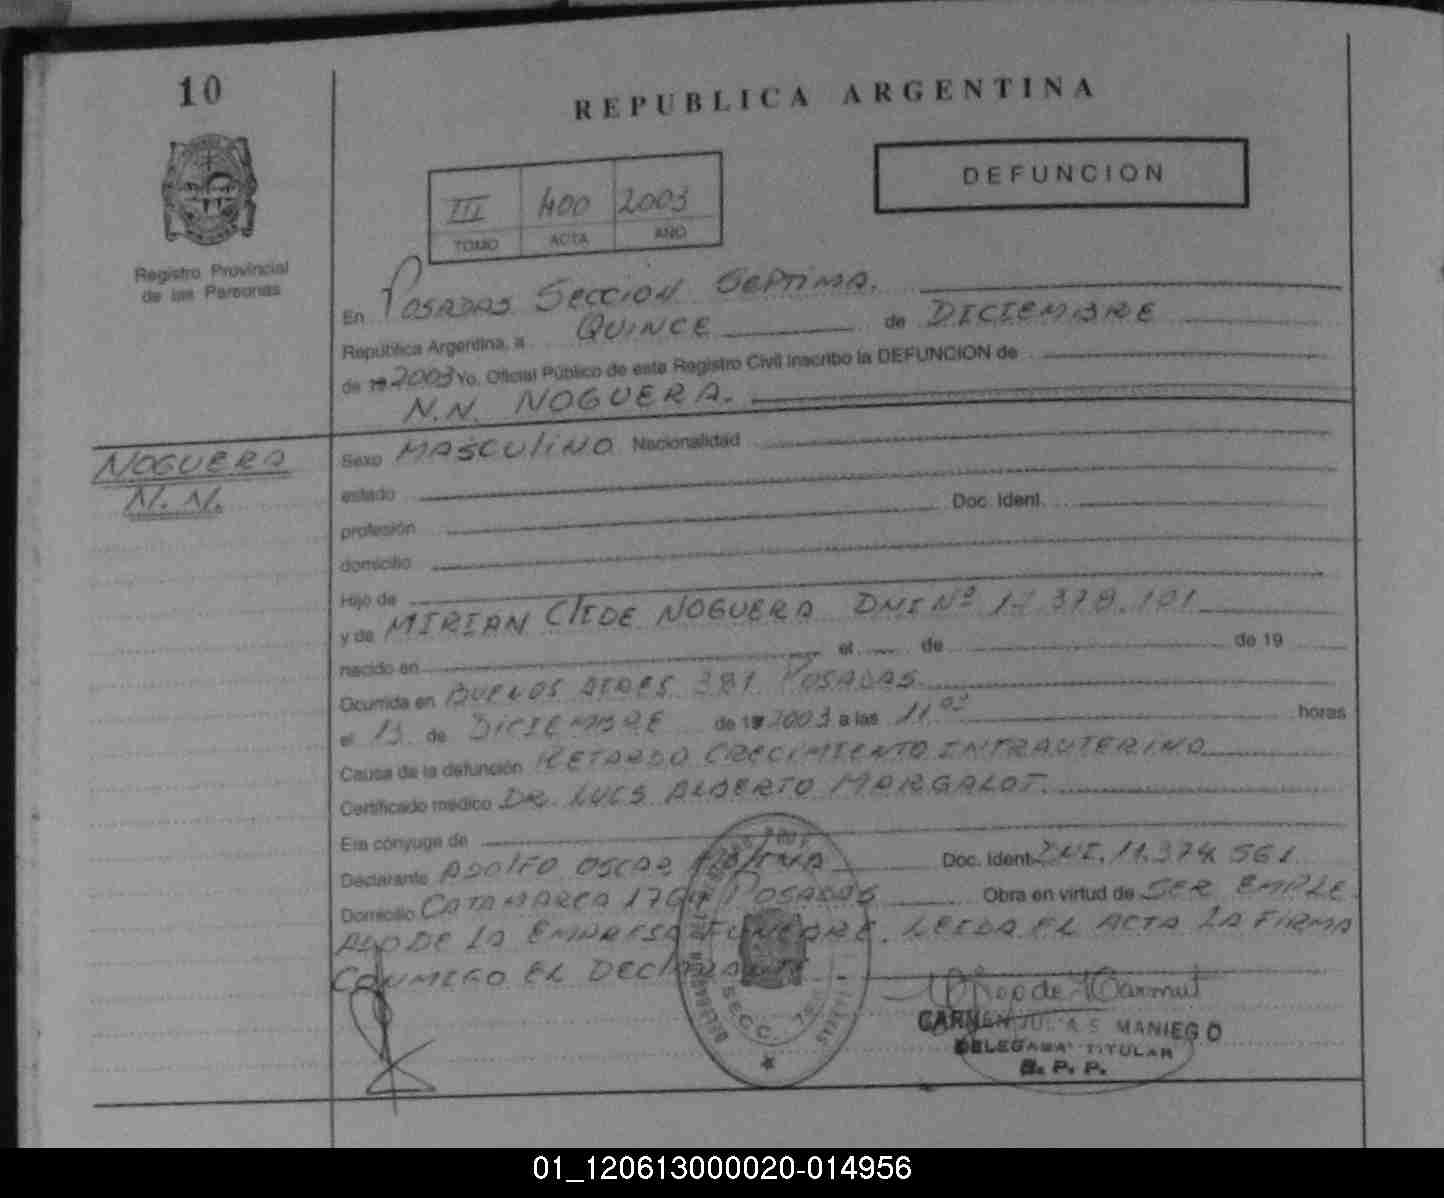 10
REPUBLICA ARGENTINA
DEFUNCION
III 400 2003
TOMO ACTA AÑO
Registro Provincial
de las Personas
En POSADAS SECCION SEPTIMA.
República Argentina, a QUINCE de DICIEMBRE
de 19 2003 Yo, Oficial Público de este Registro Civil inscribo la DEFUNCION de
N.N. NOGUERA.
NOGUERA
N.N.
Sexo MASCULINO Nacionalidad
estado
profesión Doc. Ident.
domicilio
Hijo de
y de MIRIAN NOGUERA DNI Nº
nacido en el de de 19
Ocurrida en BUENOS AIRES 381 POSADAS
el 13 de DICIEMBRE de 19 2003 a las 11 horas
Causa de la defunción RETARDO CRECIMIENTO INTRAUTERINO
Certificado médico DR. LUIS ALBERTO MARGALOT.
Era cónyuge de
Declarante ADOLFO OSCAR Doc. Ident. DNI. 11.374.561
Domicilio CATAMARCA POSADAS Obra en virtud de SER EMPLE
ADO DE LA EMPRESA FUNEBRE. LEIDA EL ACTA LA FIRMA
CONMIGO EL DECLARANTE
SECC.
CARMEN MANIEGO
DELEGADA TITULAR
R. P. P.
01_120613000020-014956